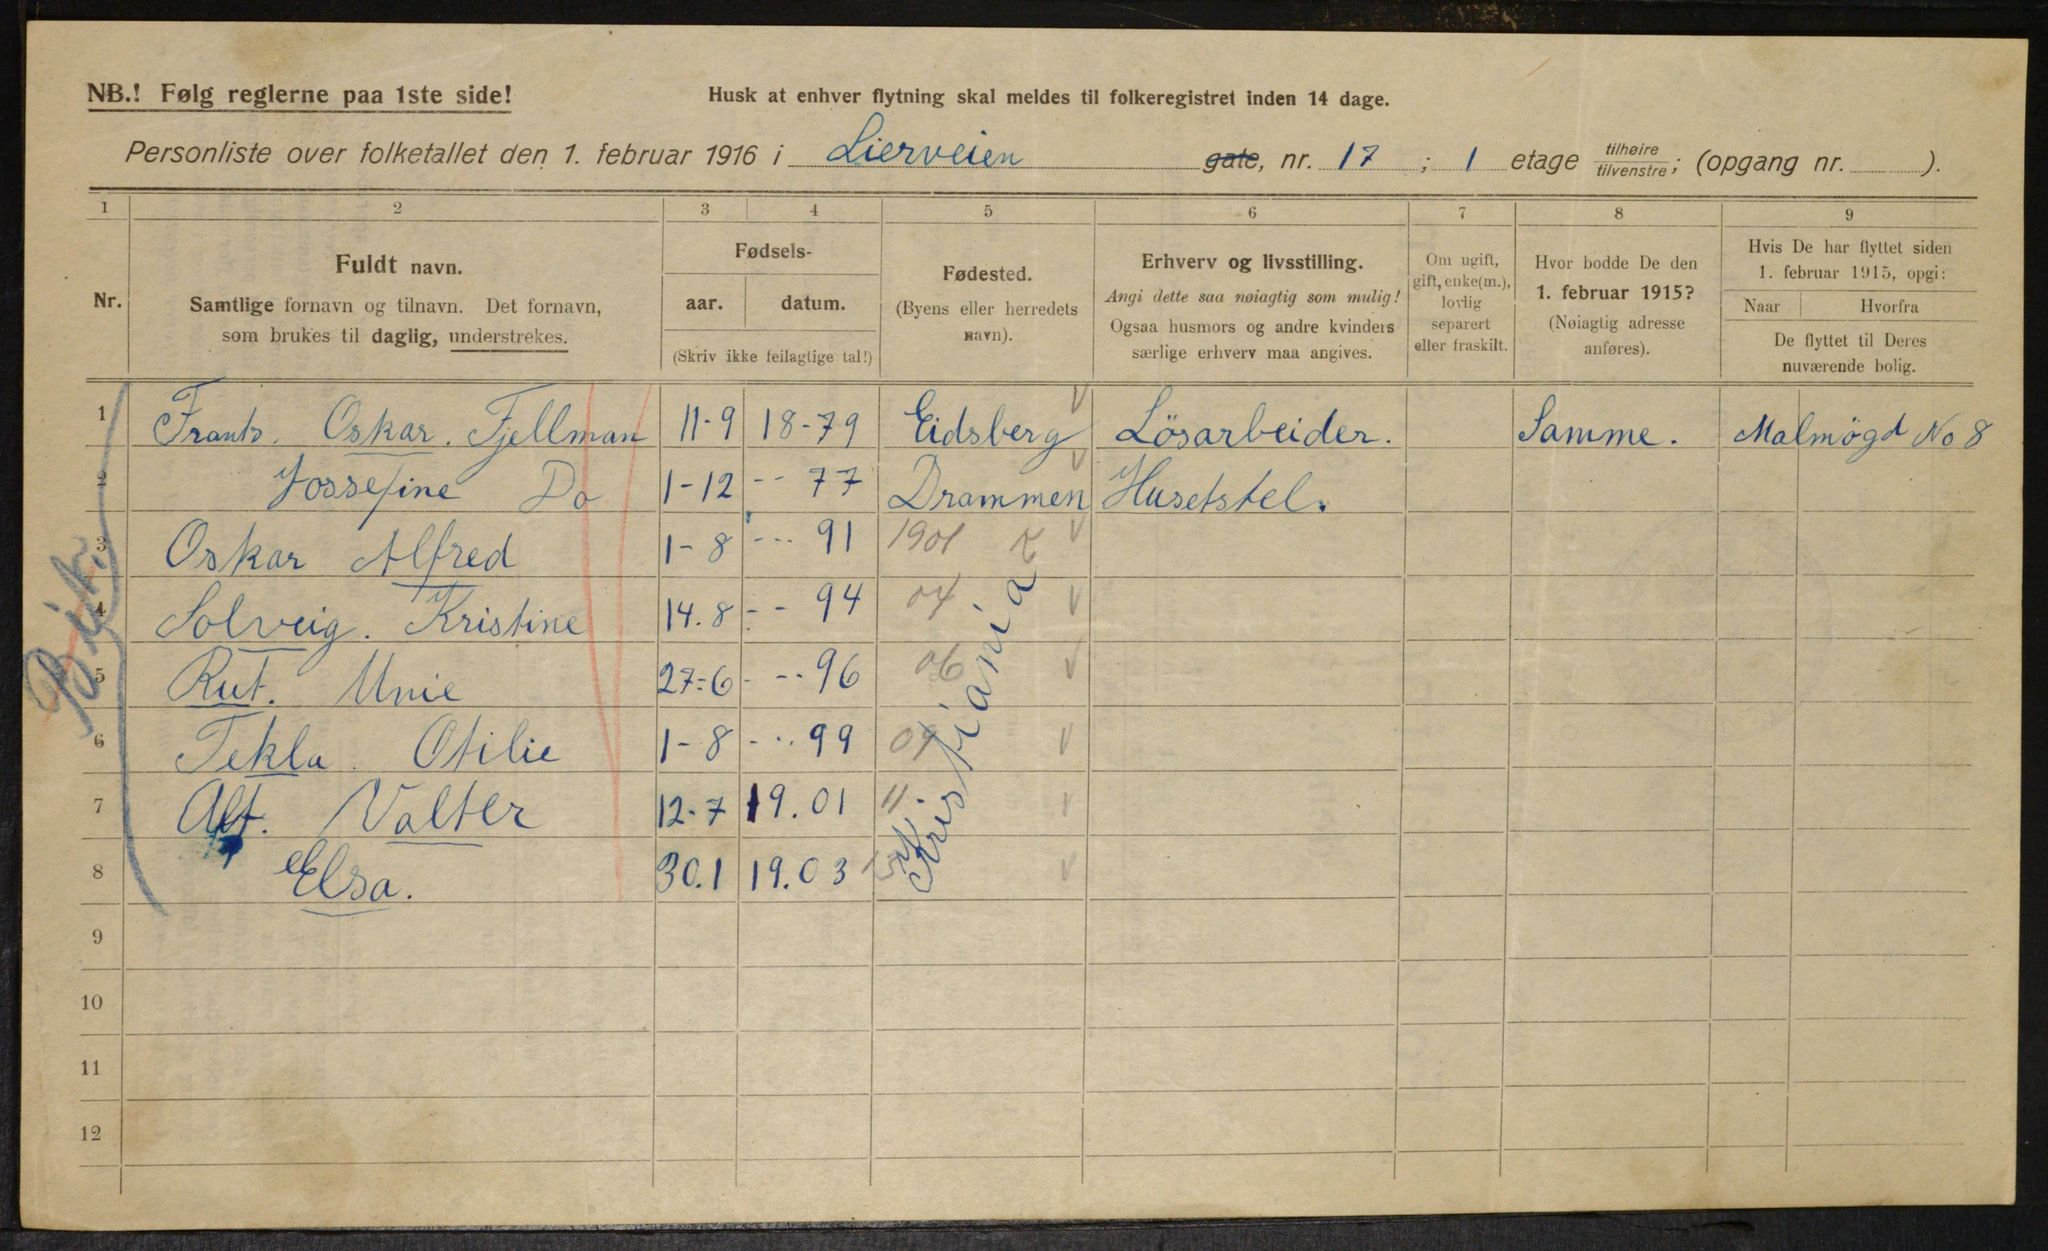 NB.! Følg reglerne paa 1ste side!
Husk at enhver flytning skal meldes til folkeregistret inden 14 dage.
Personliste over folketallet den 1. februar 1916 i Lierveien gate, nr. 17 ; 1 etage tilhøire tilvenstre; (opgang nr. ).
1 2 3 4 5 6 7 8 9
Nr.
Fuldt navn.
Samtlige fornavn og tilnavn. Det fornavn,
som brukes til daglig, understrekes.
Fødsels-
aar. datum.
(Skriv ikke feilagtige tal!)
Fødested.
(Byens eller herredets
navn).
Erhverv og livsstilling.
Angi dette saa nøiagtig som mulig!
Ogsaa husmors og andre kvinders
særlige erhverv maa angives.
Om ugift,
gift, enke(m.),
lovlig
separert
eller fraskilt.
Hvor bodde De den
1. februar 1915?
(Nøiagtig adresse
anføres).
Hvis De har flyttet siden
1. februar 1915, opgi:
Naar Hvorfra
De flyttet til Deres
nuværende bolig.
1 Frants. Oskar. Fjellman 11-9 18-79 Eidsberg Lösarbeider. Samme. Malmøgd No 8
2 Jossefine Do 1-12 -- 77 Drammen Husetstel.
3 Oskar Alfred 1-8 --- 91 1901
4 Solveig. Kristine 14.8 -- 94 04
5 Rut. Unie 27=6 --- 96 06
6 Tekla. Otilie 1-8 --- 99 09
7 Alf. Valter 12-7 19.01 11
8 Elsa. 30.1 19.03 13
Kristiania
9
10
11
12